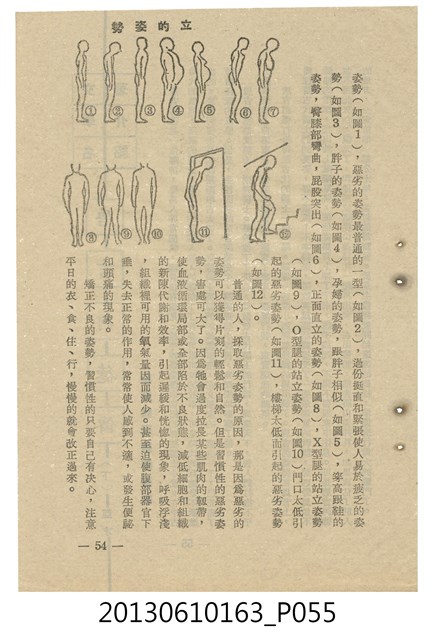 勢姿的立
① ② ③ ④ ⑤ ⑥ ⑦
⑧ ⑨ ⑩ ⑪ ⑫
姿勢(如圖1),惡劣的姿勢最普通的一型(如圖2),過份挺直和緊張使人易於疲乏的姿
勢(如圖3),胖子的姿勢(如圖4),孕婦的姿勢,跟胖子相似(如圖5),穿高跟鞋的
姿勢,臀膝部彎曲,屁股突出(如圖6),正面直立的姿勢(如圖8),X型腿的站立姿勢
(如圖9),O型腿的站立姿勢(如圖10)門口太低引
起的惡劣姿勢(如圖11),樓梯太低而引起的惡劣姿勢
(如圖12)。
普通的人,採取惡劣姿勢的原因,那是因爲惡劣的
姿勢可以獲得片刻的輕鬆和自然。但是習慣性的惡劣姿
勢,害處可大了。因爲牠會過度拉長某些肌肉的靱帶,
使血液循環局部或全部陷於不良狀態,減低細胞和組織
的新陳代謝和效率,引起遲緩和恍惚的現象,呼吸浮淺
,組織裡可用的氧氣量因而減少。甚至迫使腹部器官下
垂,失去正常的作用,常常使人感到不適,或發生便祕
和頭痛的現象。
矯正不良的姿勢,習慣性的只要自己有決心,注意
平日的衣、食、住、行,慢慢的就會改正過來。
— 54 —
20130610163_P055